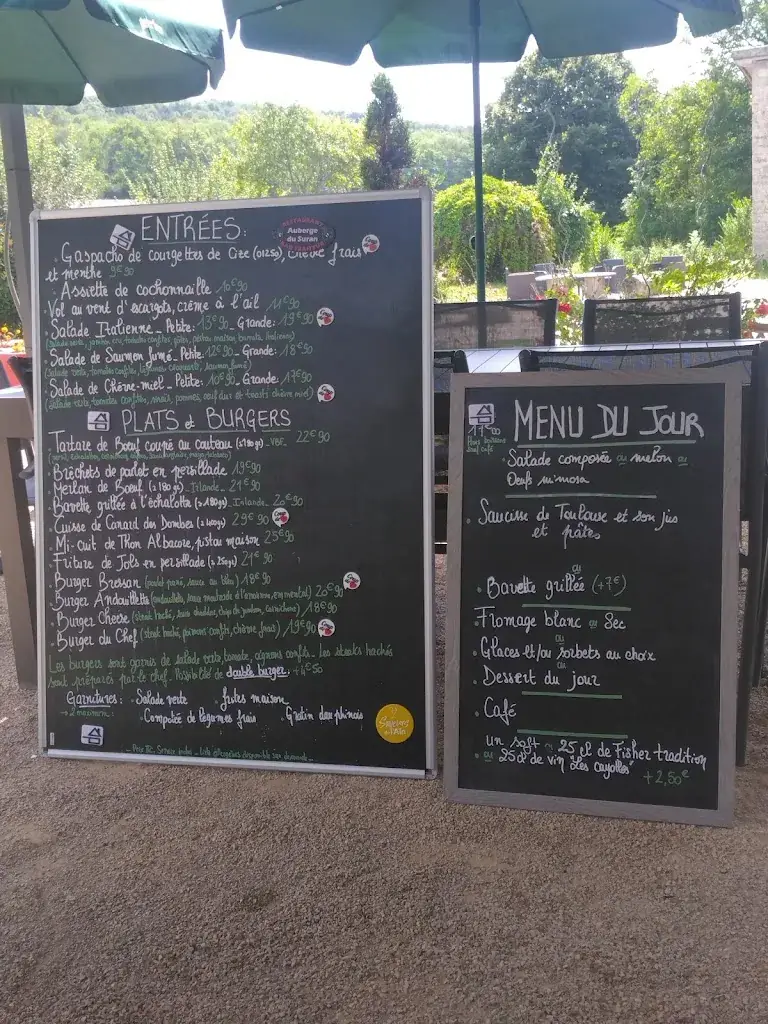 ENTRÉES:
RESTAURANT
Auberge
du Suran
. Gaspacho de courgettes de Cize (01250) chèvre frais
et menthe 9€90
. Assiette de cochonnaille 10€90
Vol au vent d'escargots, crème à l'ail 11€90
. Salade Italienne _ Petite: 13€90 _ Grande: 19€90
. Salade de Saumon fumé _ Petite: 12€90 _ Grande: 18€50
(Salade verte, tomates confites, légumes croquants, saumon fumé)
. Salade de Chèvre-miel _ Petite: 10€90 _ Grande: 17€90
PLATS et BURGERS
. Tartare de Boeuf coupé au couteau (±180gr) _ VBF _ 22€90
. Brèchets de poulet en persillade 19€90
. Merlan de Boeuf (±180 gr) _ Irlande _ 21€90
. Bavette grillée à l'échalotte (±180gr) _ Irlande _ 20€90
. Cuisse de Canard des Dombes (±400gr) 29€90
. Mi-cuit de Thon Albacore, pistou maison 25€90
. Friture de Jols en persillade (±250gr) 21€90
. Burger Bressan (poulet pané, sauce au bleu) 18€90
. Burger Andouillette 20€90
. Burger Cheese 18€90
. Burger du Chef (steak haché, poivrons confits, chèvre frais) 19€90
Les burgers sont garnis de salade verte, tomate, oignons confits _ Les steaks hachés
sont préparés par le chef. Possibilité de double burger: +4€50
Garnitures: . Salade verte . frites maison
→ 2 maximum: . Compotée de légumes frais . Gratin dauphinois
Saveurs
de l'Ain
MENU DU JOUR
. Salade composée ou melon ou
Oeufs mimosa
. Saucisse de Toulouse et son jus
et pâtes
ou
. Bavette grillée (+7€)
. Fromage blanc ou Sec
ou
. Glaces et/ou sorbets au choix
ou
. Dessert du jour
. Café
. un soft ou 25 cl de Fisher tradition
ou 25cl de vin "Les cayolles"
+2,50€